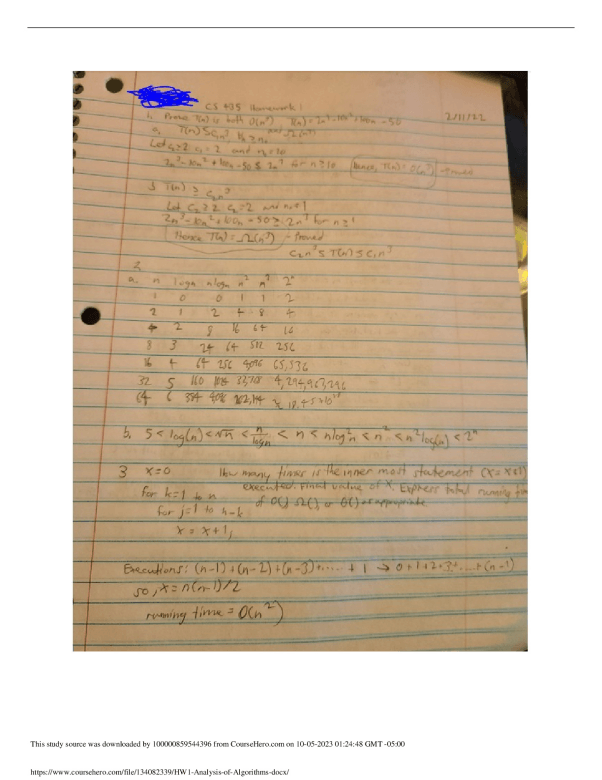 CS 435 Homework 1
1. Prove T(n) is both O(n³), T(n) = 2n³-10n²+100n-50 2/11/22
a. T(n) ≤ C₁n³ ∀n ≥ n₀
Let C₁≥2 C₁=2 and n₀=10
2n³-10n²+100n-50 ≤ 2n³ for n≥10 hence, T(n) = O(n³) - proved
T(n) ≥ C₂n³
Let C₂≥2 C₂=2 and n₀=1
2n³-10n²+100n-50 ≥ 2n³ for n≥1
Hence T(n) = Ω(n³) - Proved
C₂n³ ≤ T(n) ≤ C₁n³
2.
a. n logn nlogn n² n³ 2ⁿ
1 0 0 1 1 2
2 1 2 4 8 4
4 2 8 16 64 16
8 3 24 64 512 256
16 4 64 256 4,096 65,536
32 5 160 1024 32,768 4,294,967,296
64 6 384 4096 262,144
b. 5 < log(n) < √n < n/logn < n < nlog²n < n² < n²log(n) < 2ⁿ
3 x=0 How many times is the inner most statement (x=x+1)
for k=1 to n executed. Final value of X. Express total running time
for j=1 to n-k of O(), Ω(), or Θ() as appropriate
x = x+1;
Executions: (n-1)+(n-2)+(n-3)+..... + 1 → 0+1+2+3+....+(n-1)
so, x = n(n-1)/2
running time = O(n²)
This study source was downloaded by 100000859544396 from CourseHero.com on 10-05-2023 01:24:48 GMT -05:00
https://www.coursehero.com/file/134082339/HW1-Analysis-of-Algorithms-docx/